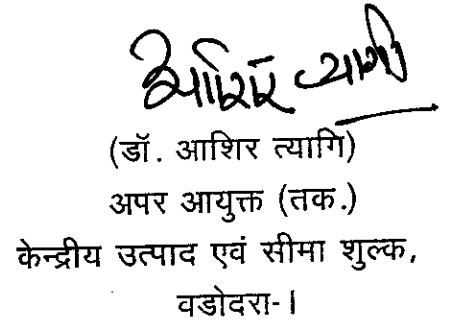 आशिर त्यागि
(डॉ. आशिर त्यागि)
अपर आयुक्त (तक.)
केन्द्रीय उत्पाद एवं सीमा शुल्क,
वडोदरा-I